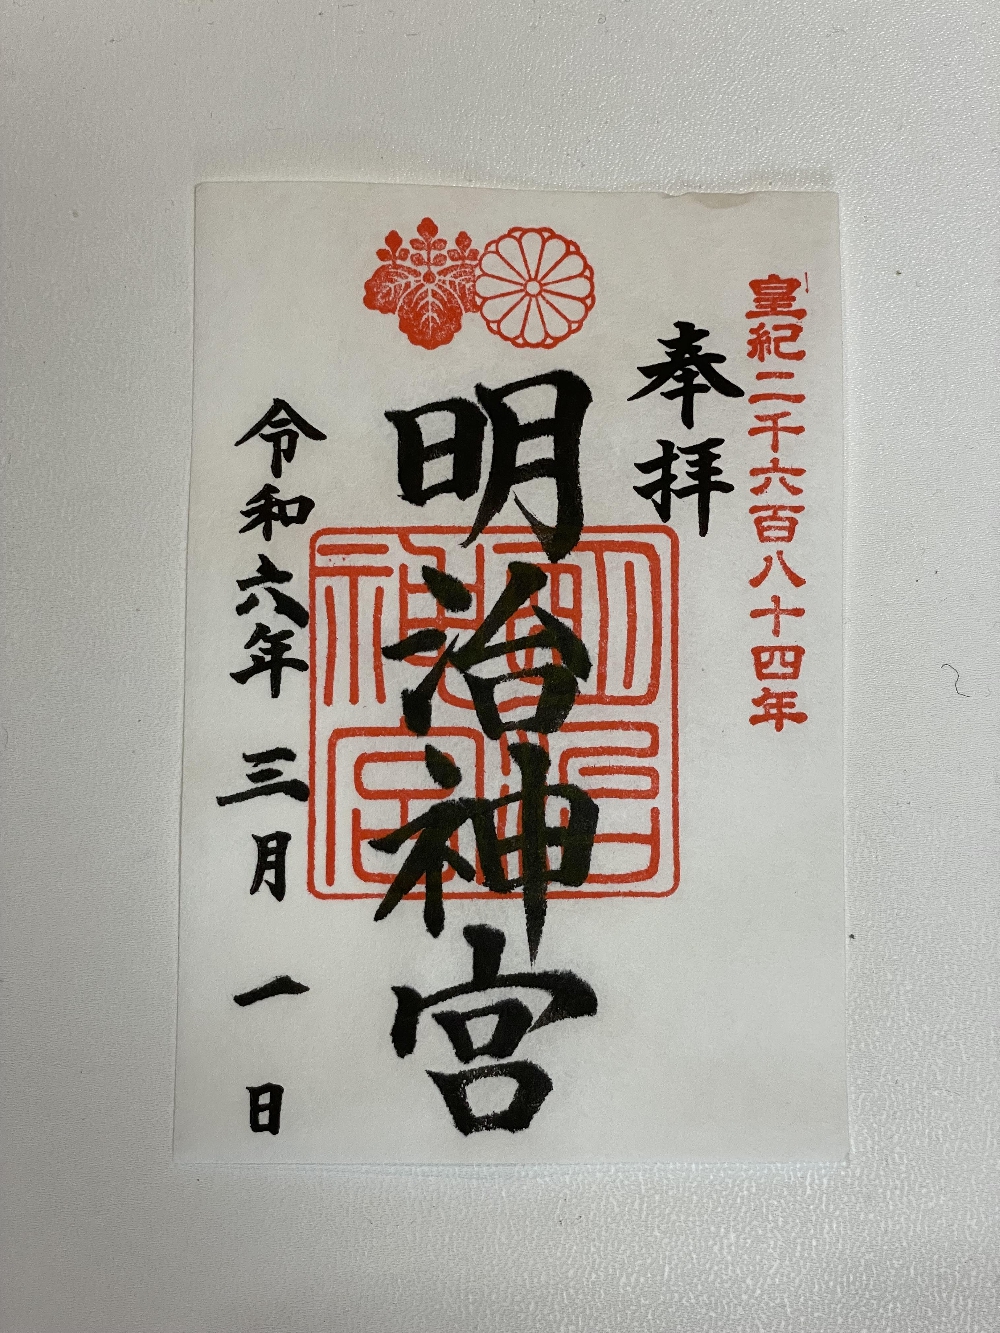 皇紀二千六百八十四年
奉拝
明治神宮
明治神宮
令和六年三月一日